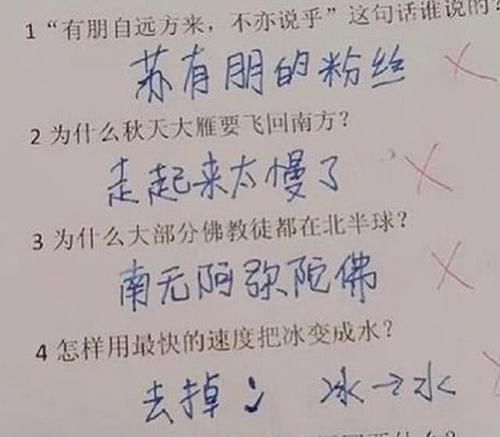 1 “有朋自远方来，不亦说乎”这句话谁说的？
苏有朋的粉丝
2 为什么秋天大雁要飞回南方？
走起来太慢了
3 为什么大部分佛教徒都在北半球？
南无阿弥陀佛
4 怎样用最快的速度把冰变成水？
去掉冫 冰→水